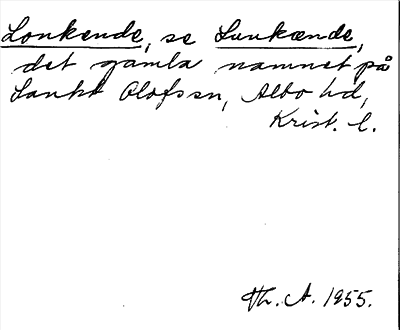 Lonkende, se Lunkende,
det gamla namnet på
Sankt Olofssn, Albo hd,
Krist. l.
Th. A. 1955.